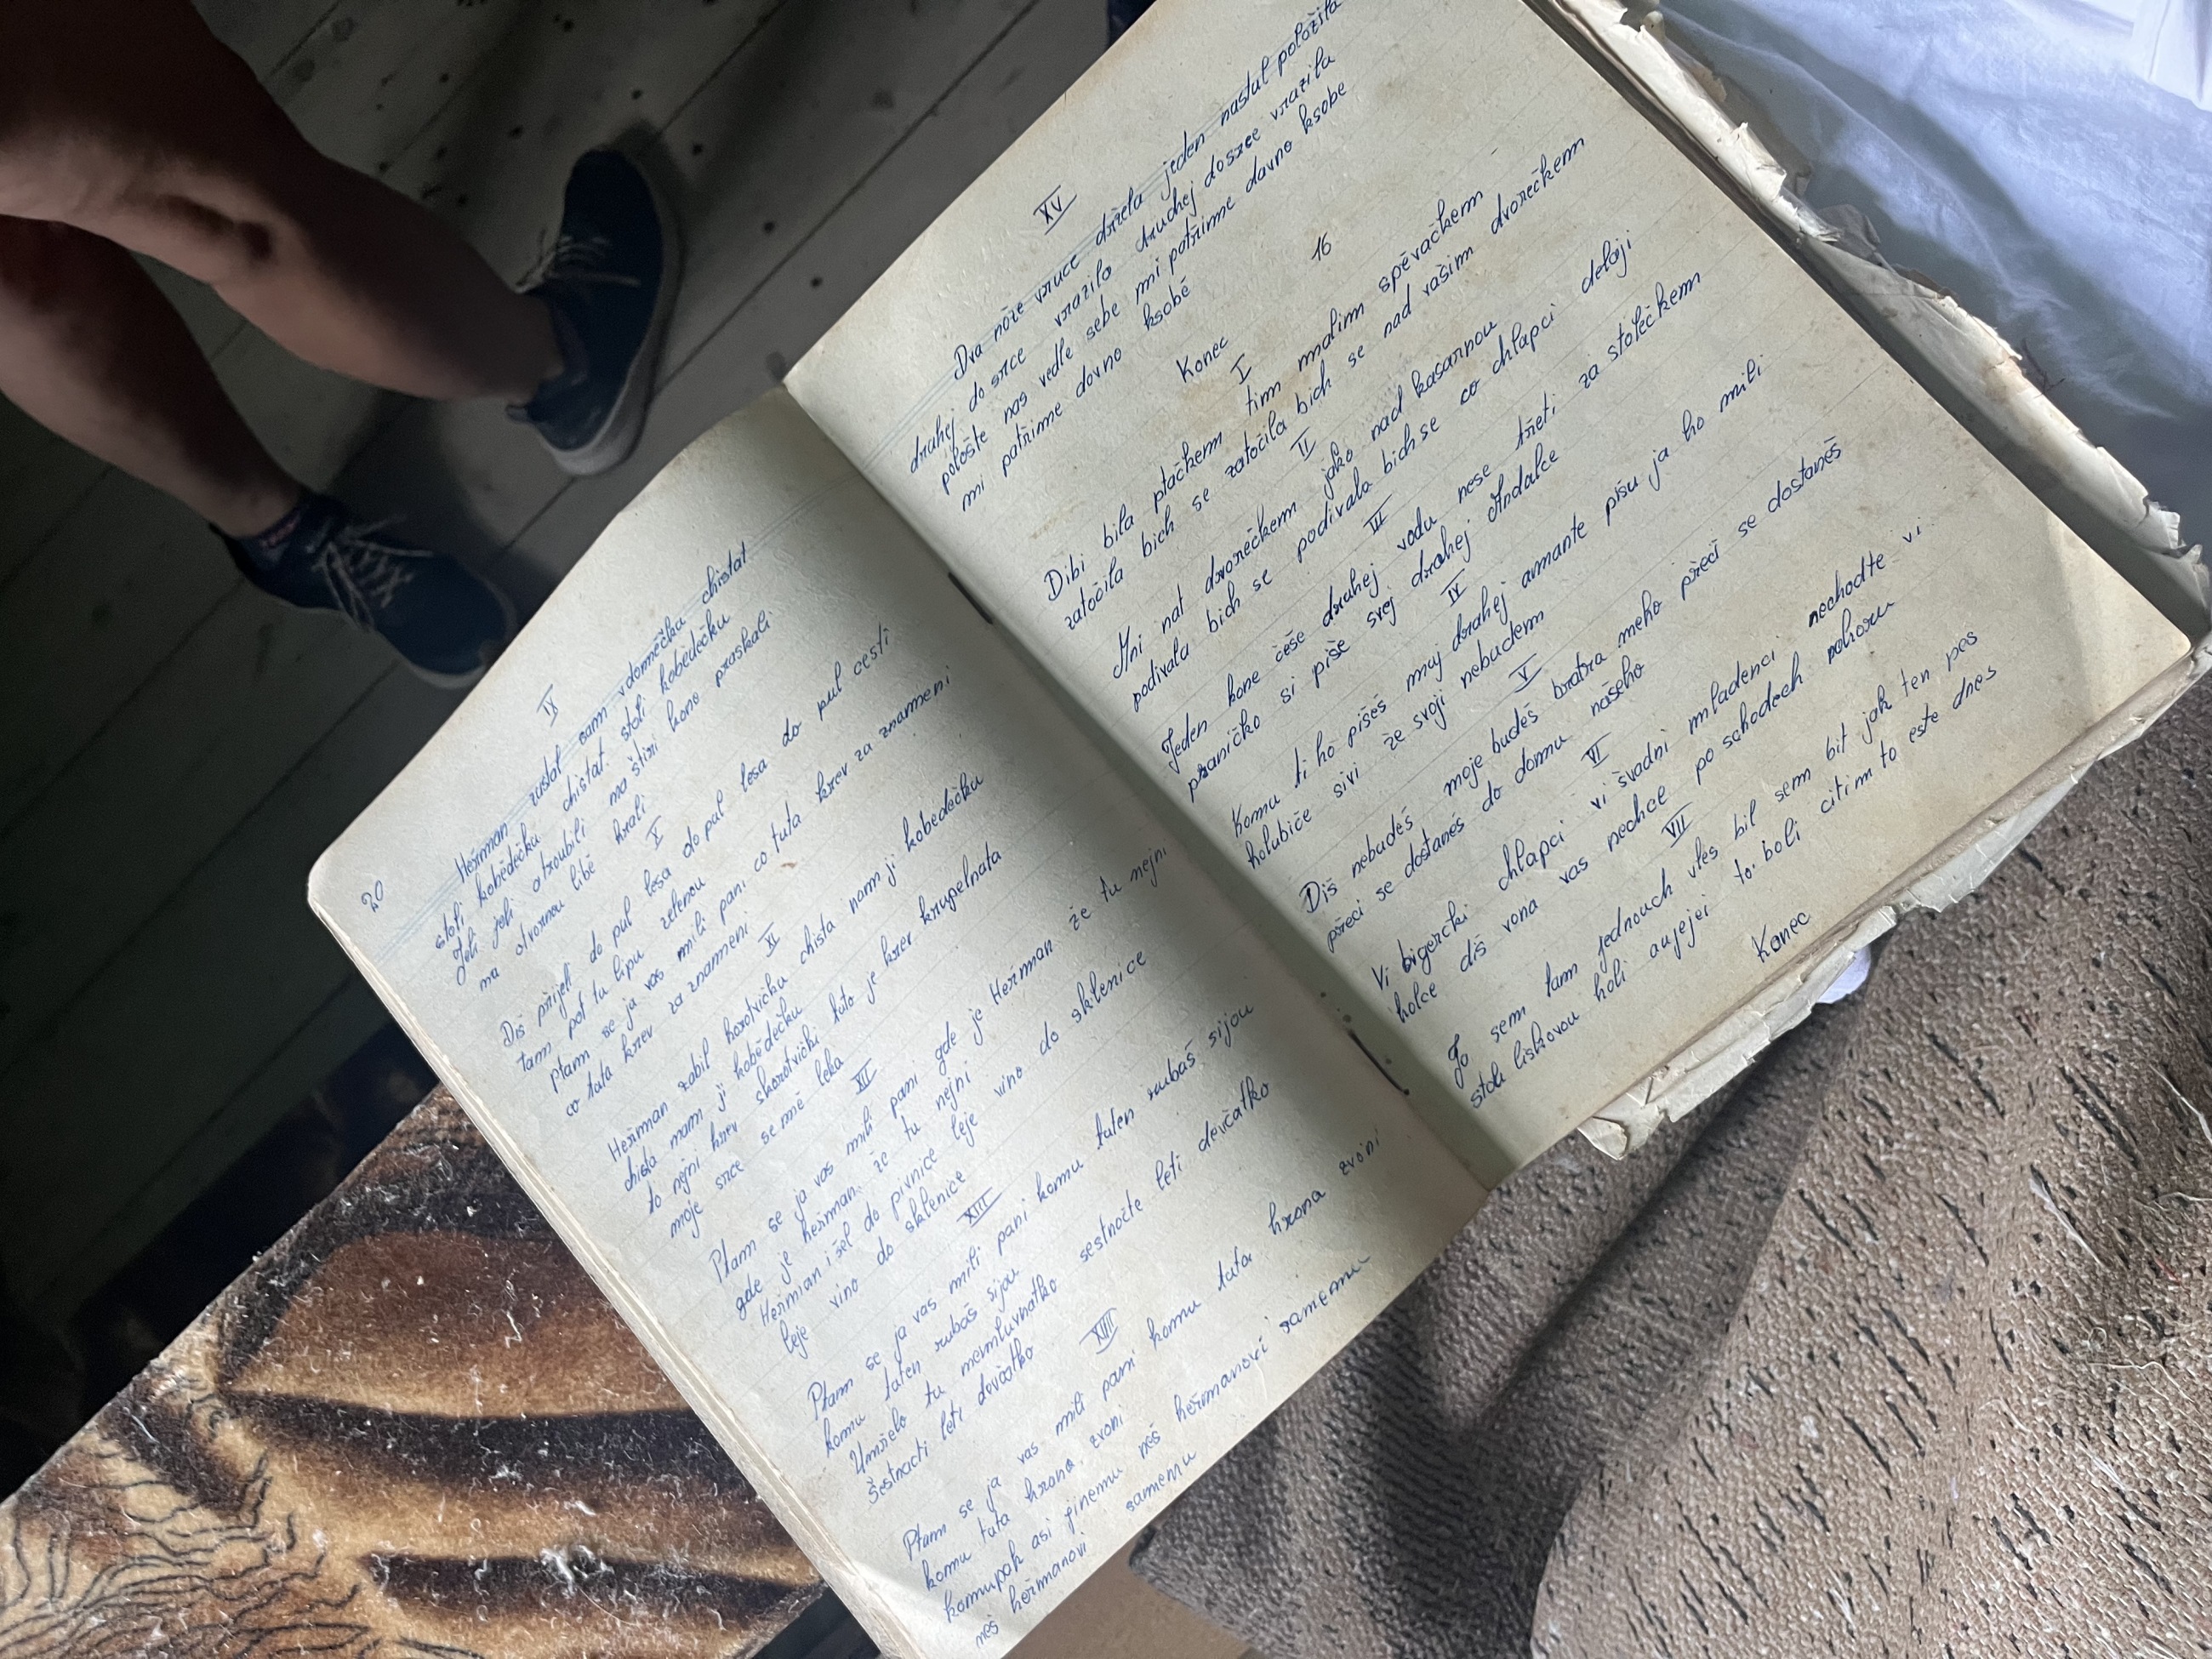 20
IX
Heřman zustal sam vdomněčku chistat
stoli kobědečku chistat stoli kobědečku
Jeli jeli atroubili na štiri kono praskali
na otvornou libě hrali
X
Diš přijeli do pul lesa do pul lesa do pul cesti
tam pot tu lipu zelenou
Ptam se ja vas mili pani co tuta krev za znameni
co tuta krev za znameni
XI
Heřman zabil korotvičku chista nam ji kobědečku
chista mam ji kobědečku
to nejni krev skorotvički tuto je krev krupelnata
moje srce se mě leka
XII
Ptam se ja vas mili pani gde je Heřman že tu nejni
gde je heřman že tu nejni
Heřman i šel do pivnice leje vino do sklenice
leje vino do sklenice
XIII
Ptam se ja vas mili pani komu taten rubaš sijou
komu taten rubaš sijou
Umřelo tu nemluvnatko sestnácte leti devčatko
šestnacti leti devčatko
XIIII
Ptam se ja vas mili pani komu tuta hrana zvoni
komu tuta hrana zvoni
komupak asi jinemu něš heřmanovi samemu
něš heřmanovi samemu
XV
Dva nože vruce držela jeden nastul položila
drahej do srce vrazila druhej dosrce vrazila
položte nas vedle sebe mi patřime davno ksobe
mi patřime davno ksobě
Konec 16
I
Dibi bila ptačkem tim malim spěvačkem
zatočila bich se zatočila bich se nad vašim dvorečkem
II
Ani nat dvorečkem jako nad kasarnou
podivala bich se podivala bich se co chlapci delaji
III
Jeden kone češe druhej vodu nese třeti za stolečkem
psaničko si piše svej drahej Andulce
IV
Komu ti ho pišeš muj drahej amante pišu ja ho mili
holubiče sivi že svoji nebudem
V
Diš nebudeš moje budeš bratra meho přeci se dostaneš
přeci se dostaneš do domu našeho
VI
Vi bigercki chlapci vi švadni mladenci nechodte vi
holce diš vona vas nechce po schodech nahoru
VII
Jo sem tam jednouch vles bil sem bit jak ten pes
stou liskovou holi aujejei to boli citim to este dnes
Konec